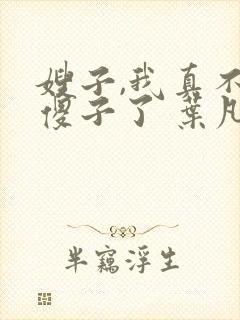 嫂子,我真不
傻子了 葉凡
半竊浮生